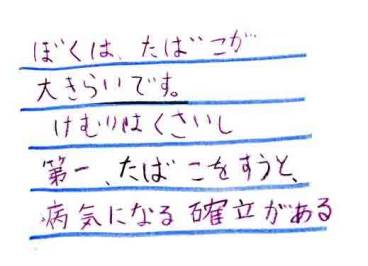 ぼくは、たばこが
大きらいです。
けむりはくさいし
第一、たばこをすうと、
病気になる確立がある